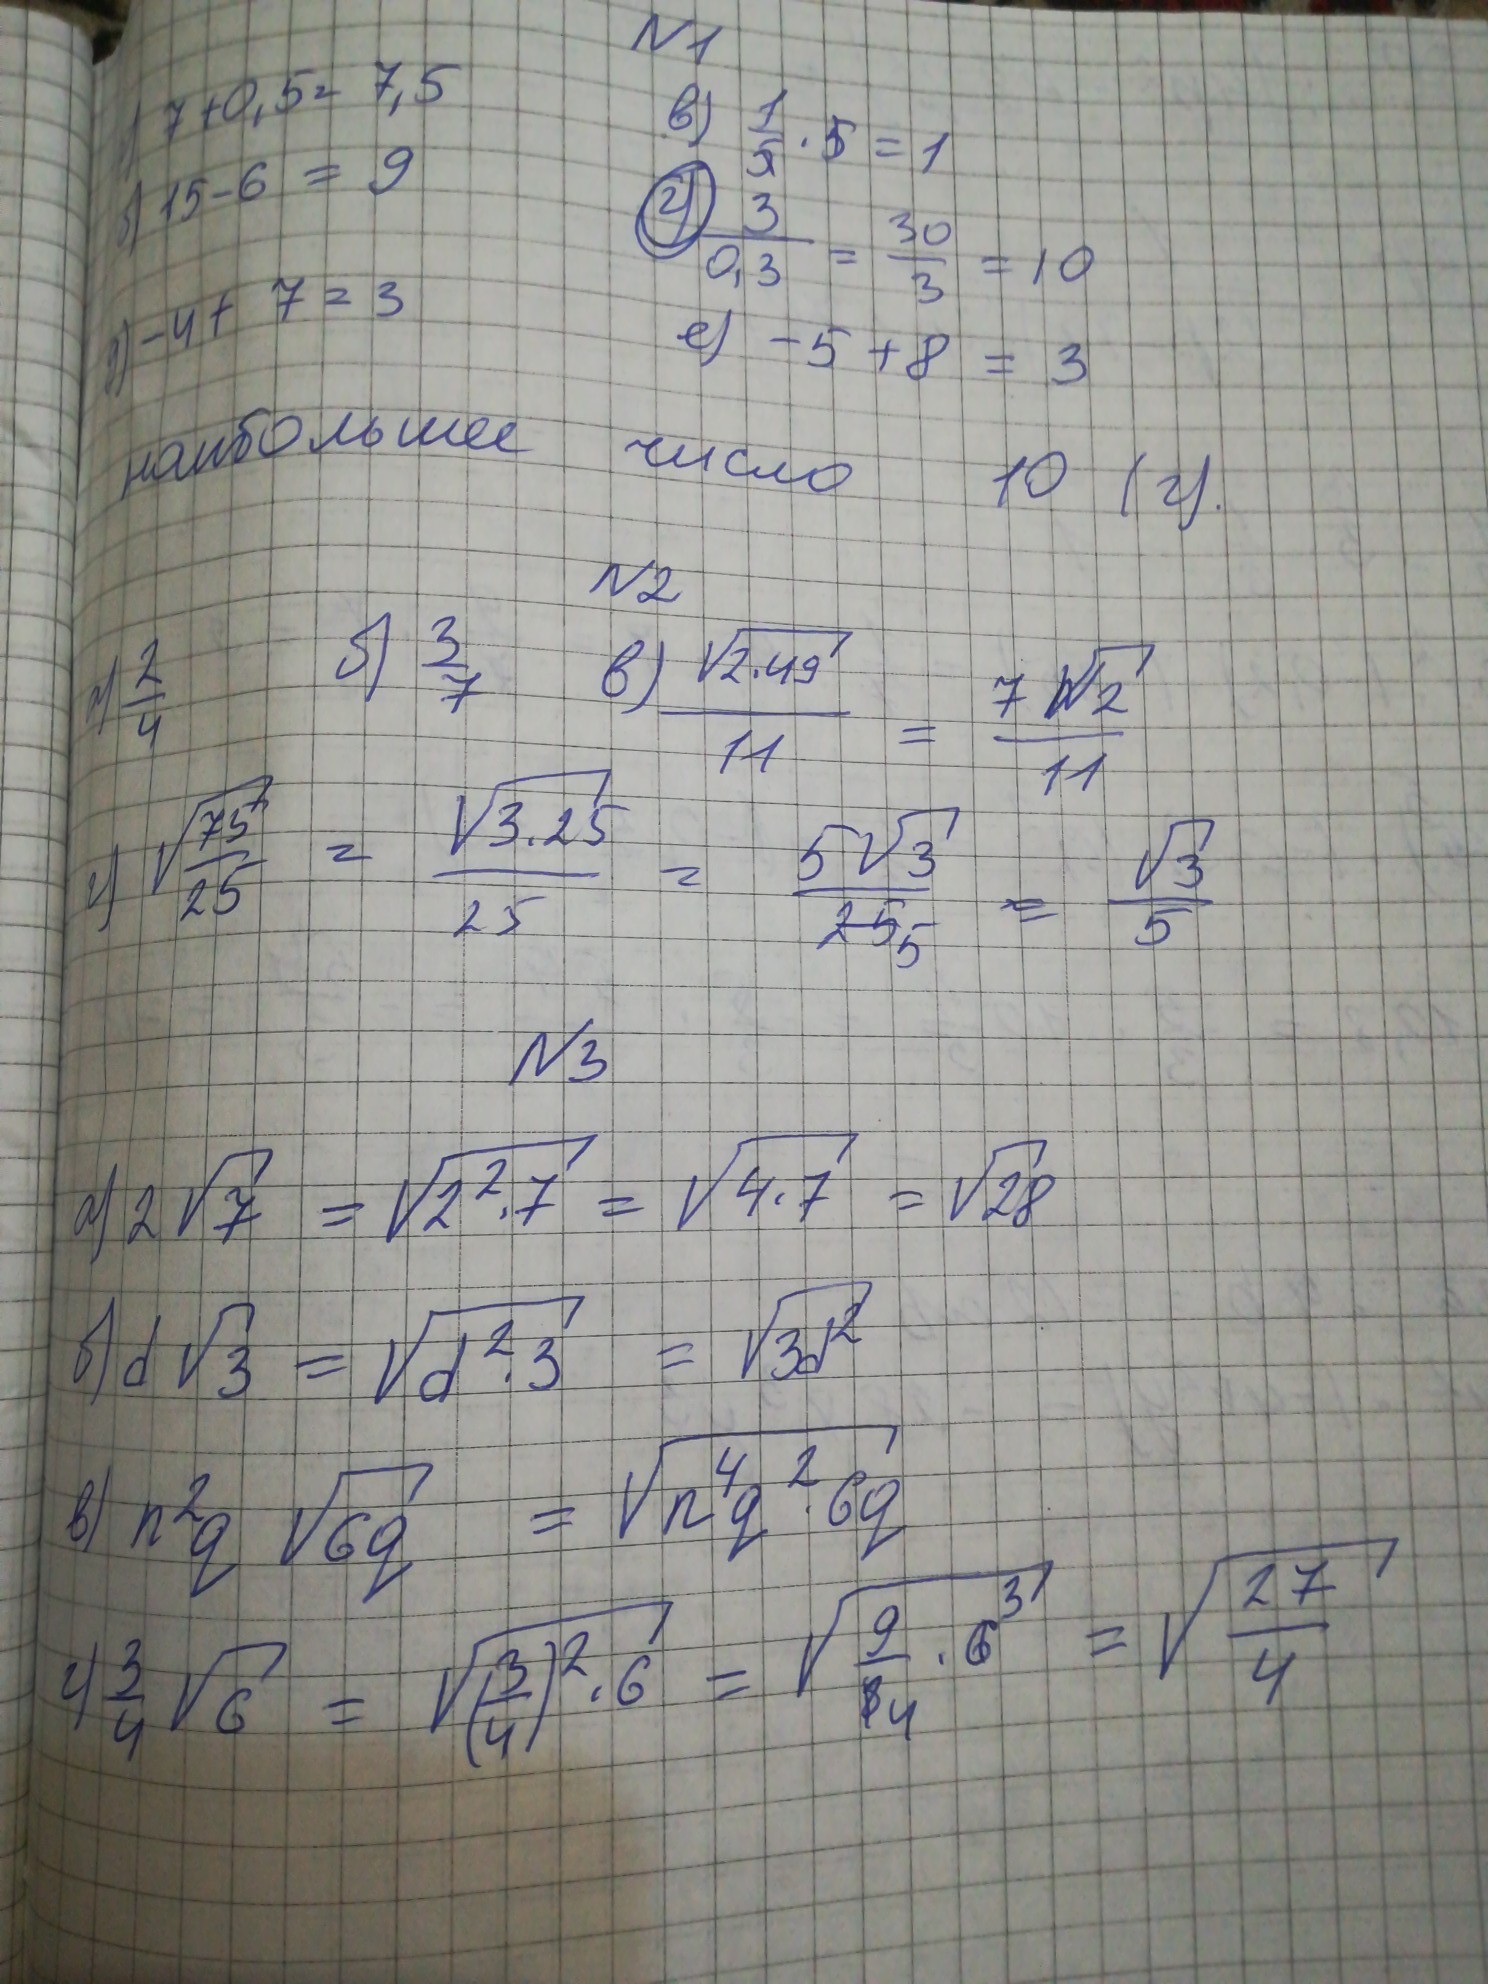 N1
а) 7+0,5= 7,5
в) 1/5 · 5 = 1
б) 15-6 = 9
г) 3/0,3 = 30/3 = 10
д) -4+ 7=3
е) -5+8 = 3
наибольшее число 10 (г).
N2
а) 2/4 б) 3/7 в) √2·49/11 = 7√2/11
г) √75/25 = √3·25/25 = 5√3/25 5 = √3/5
N3
а) 2√7 = √2²·7 = √4·7 = √28
б) d√3 = √d²·3 = √3d²
в) n²q √6q = √n⁴q²·6q
г) 3/4 √6 = √(3/4)²·6 = √9/4 · 6 3 = √27/4